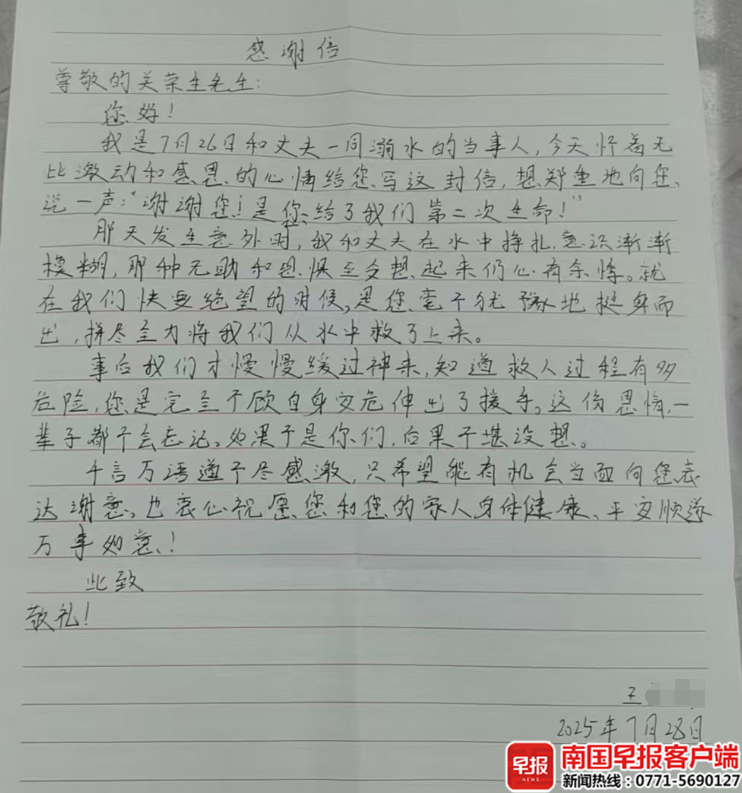 感谢信
尊敬的关荣生先生：
您好！
我是7月26日和丈夫一同溺水的当事人，今天怀着无
比激动和感恩的心情给您写这封信，想郑重地向您
说一声："谢谢您！是您给了我们第二次生命！"
那天发生意外时，我和丈夫在水中挣扎，意识渐渐
模糊，那种无助和恐惧至今想起来仍心有余悸。就
在我们快要绝望的时候，是您毫不犹豫地挺身而
出，拼尽全力将我们从水中救了上来。
事后我们才慢慢缓过神来，知道救人过程有多
危险，您是完全不顾自身安危伸出了援手。这份恩情，一
辈子都不会忘记。如果不是你们，后果不堪设想。
千言万语道不尽感激，只希望能有机会当面向您表
达谢意，也衷心祝愿您和您的家人身体健康、平安顺遂
万事如意！
此致
敬礼！
王
2025年7月28日
早报
NEWS
南国早报客户端
新闻热线：0771-5690127